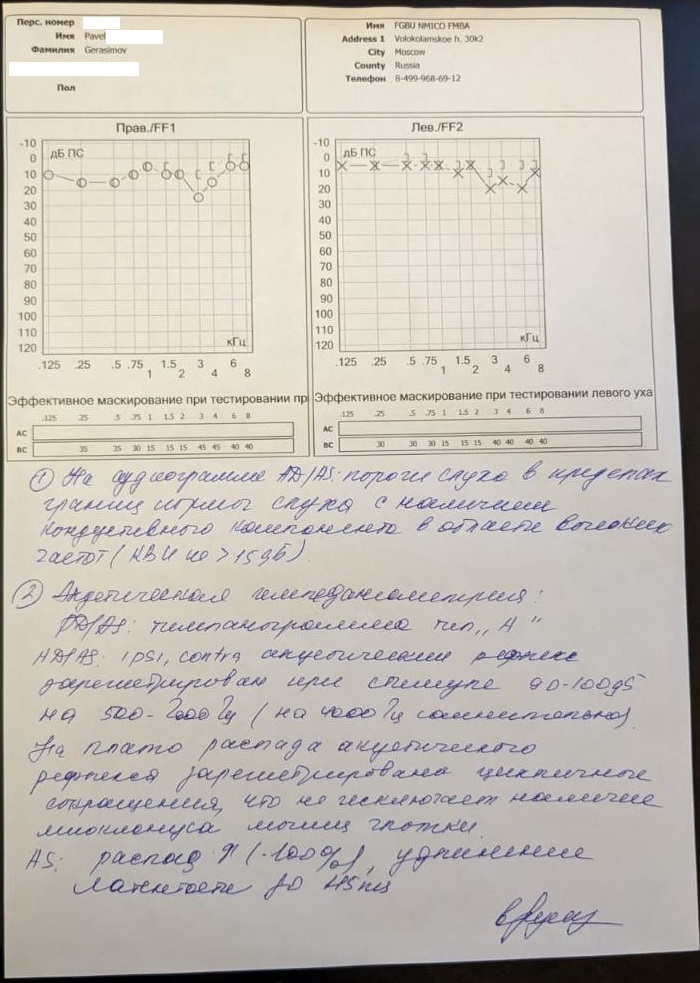 Перс. номер
Имя Pavel
Фамилия Gerasimov
Пол
Имя FGBU NMICO FMBA
Address 1 Volokolamskoe h. 30k2
City Moscow
County Russia
Телефон 8-499-968-69-12
Прав./FF1
дБ ПС
-10
0
10
20
30
40
50
60
70
80
90
100
110
120
кГц
.125 .25 .5 .75 1 1.5 2 3 4 6 8
Лев./FF2
дБ ПС
-10
0
10
20
30
40
50
60
70
80
90
100
110
120
кГц
.125 .25 .5 .75 1 1.5 2 3 4 6 8
Эффективное маскирование при тестировании пр
.125 .25 .5 .75 1 1.5 2 3 4 6 8
AC
BC 35 35 30 15 15 15 45 45 40 40
Эффективное маскирование при тестировании левого уха
.125 .25 .5 .75 1 1.5 2 3 4 6 8
AC
BC 30 30 30 15 15 15 40 40 40 40
① На аудиограмме AD/AS: пороги слуха в пределах
границ нормы слуха с наличием
кондуктивного компонента в области высоких
частот (КВИ не > 15дБ).
② Акустическая импедансометрия:
AD/AS: тимпанограмма тип „А"
AD/AS: ipsi, contra акустический рефлекс
зарегистрирован при стимуле 90-100дБ
на 500-2000Гц (на 4000Гц сомнительно).
На плато распада акустического
рефлекса зарегистрирована цикличные
сокращения, что не исключает наличие
миоклонуса мышц глотки.
AS: распад (-100%), удлинение
латентости до